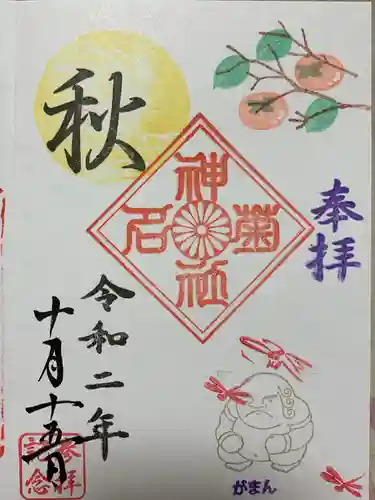 奉拝
秋
菊名神社
令和二年
十月十五日
参拝記念
がまん